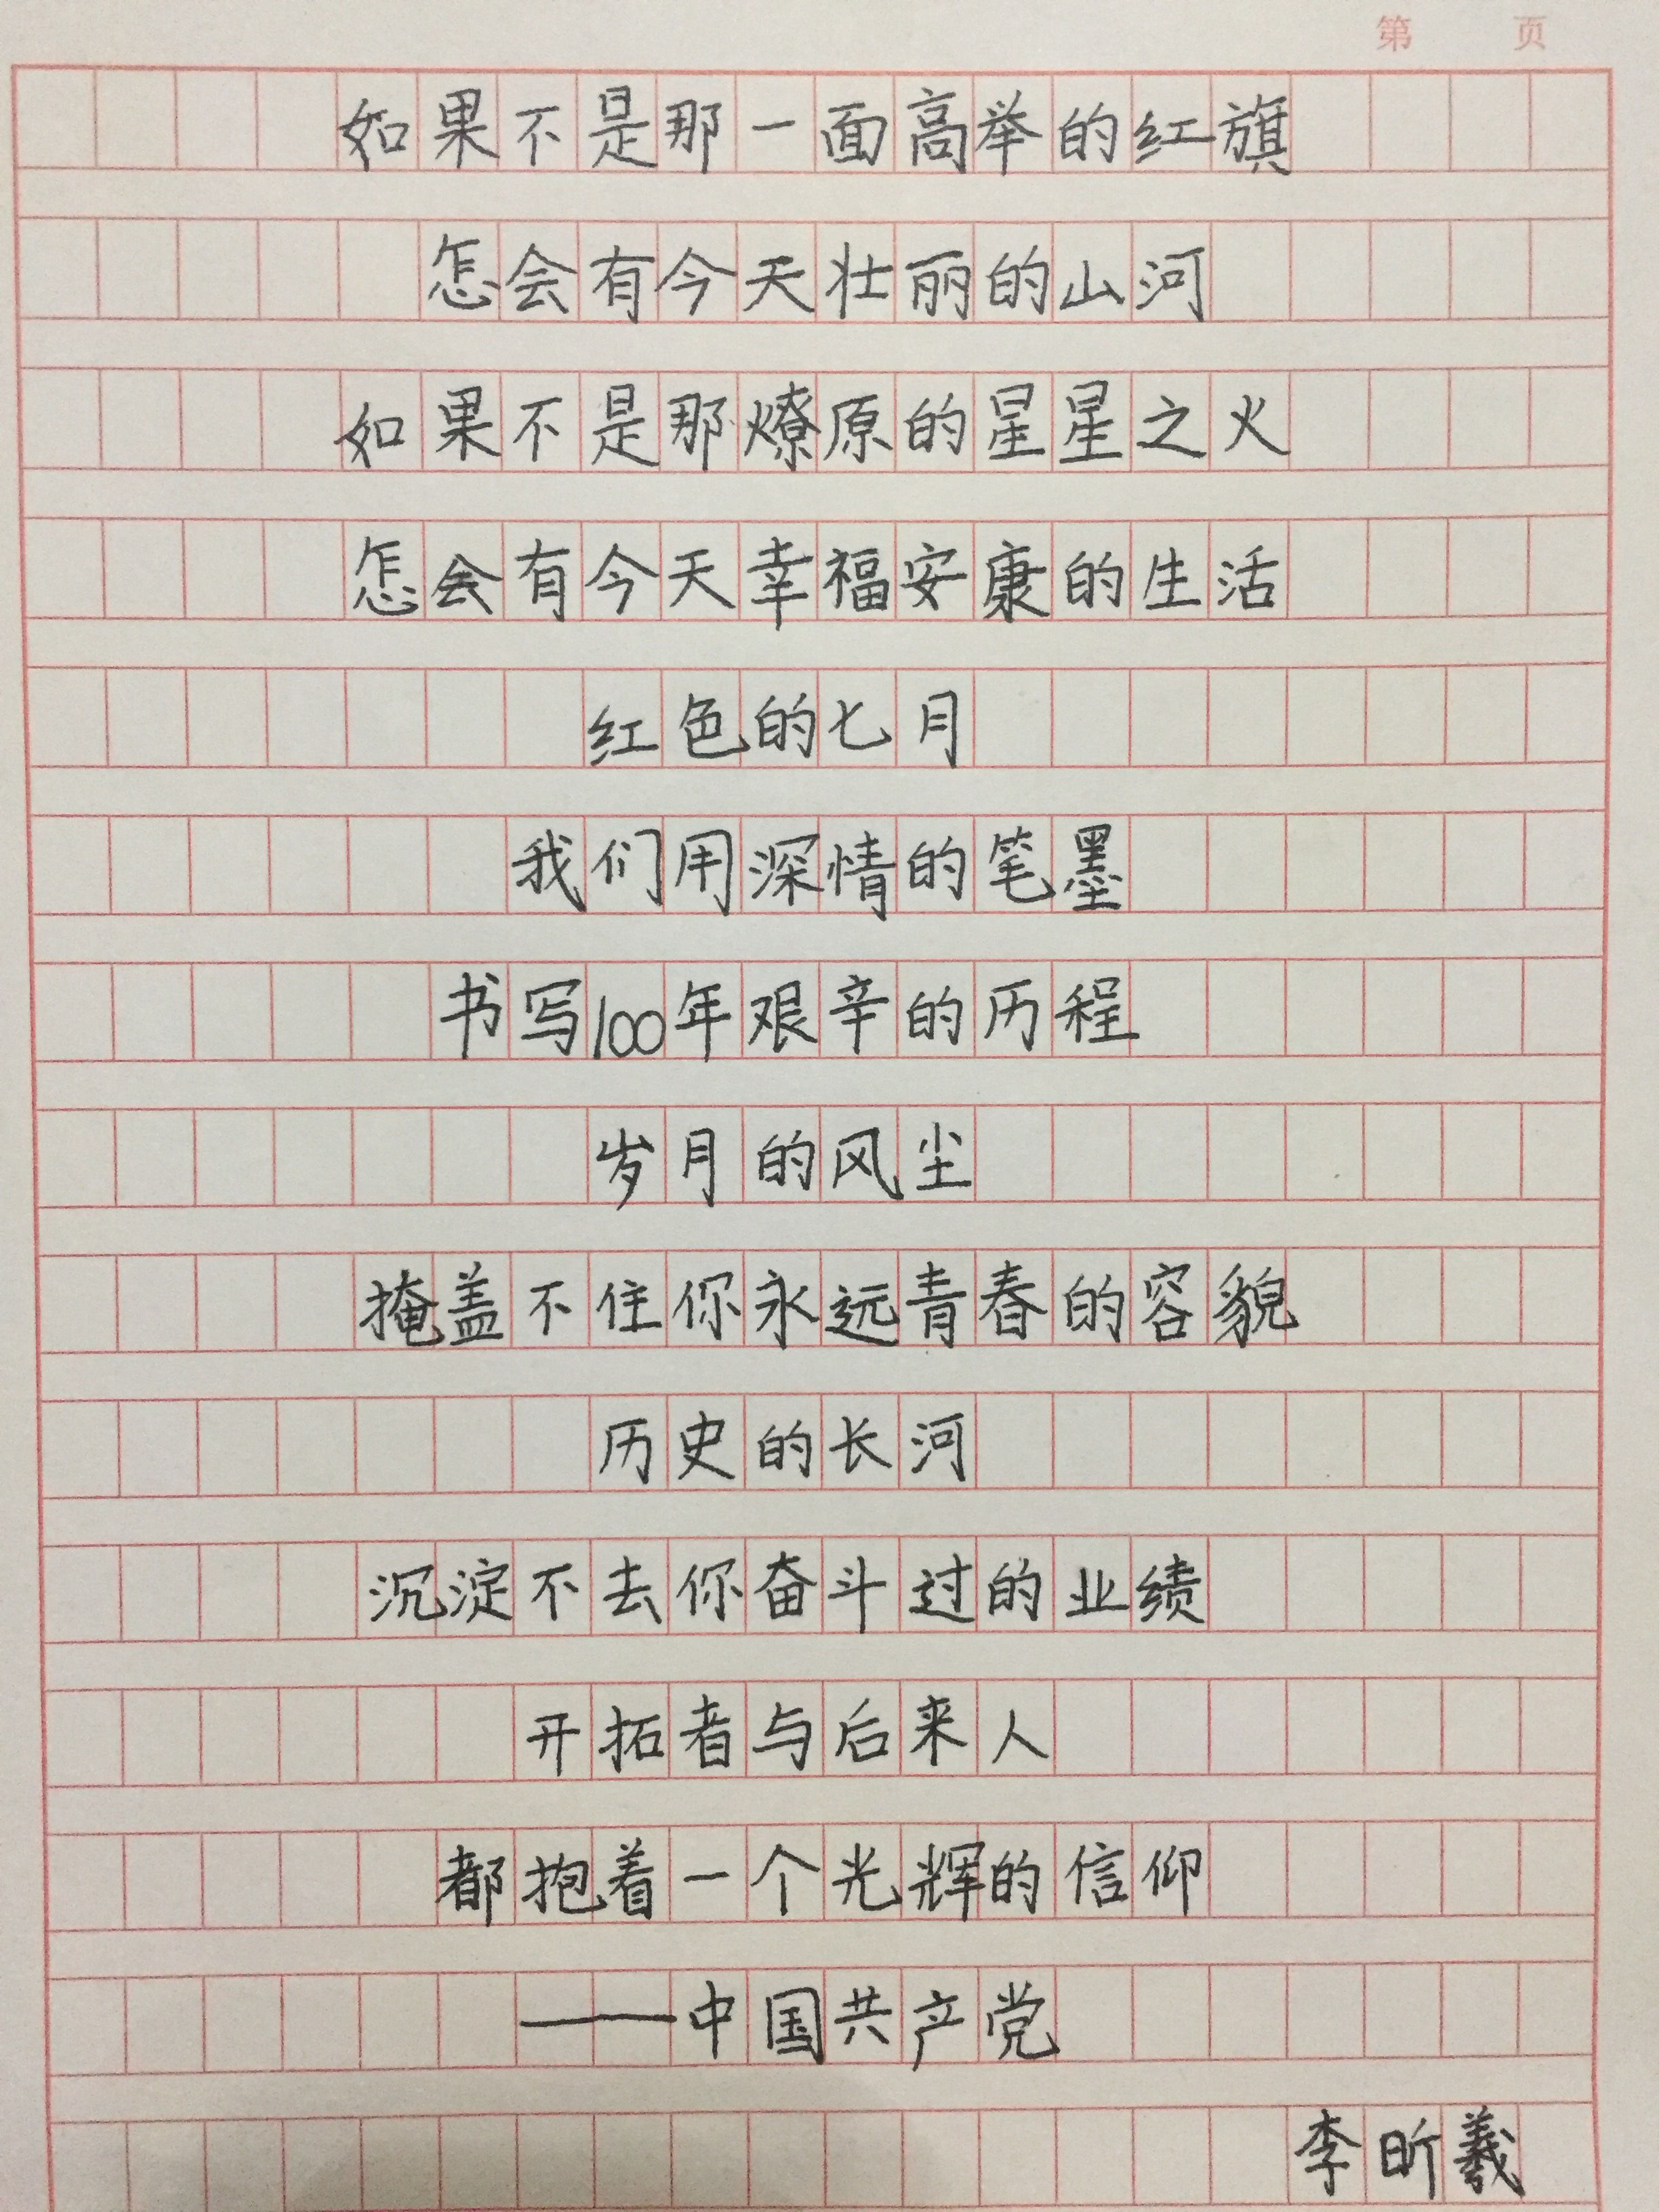 第 页
如果不是那一面高举的红旗
怎会有今天壮丽的山河
如果不是那燎原的星星之火
怎会有今天幸福安康的生活
红色的七月
我们用深情的笔墨
书写100年艰辛的历程
岁月的风尘
掩盖不住你永远青春的容貌
历史的长河
沉淀不去你奋斗过的业绩
开拓者与后来人
都抱着一个光辉的信仰
——中国共产党
李昕羲